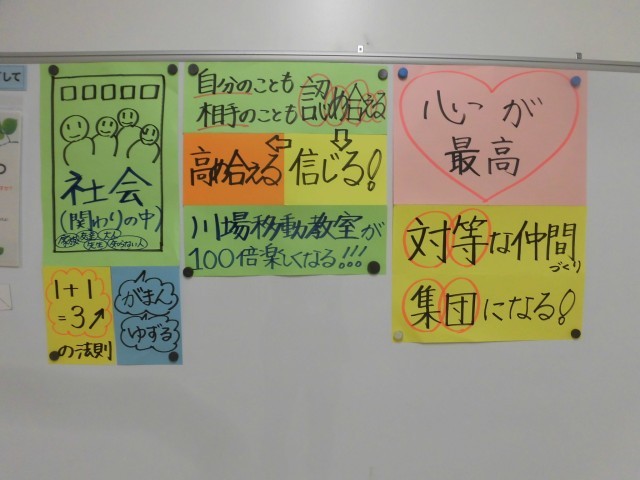 して
□□□□□
社会
(関わりの中)
家族 友達 大人
先生 知らない人
1+1
=3↗
の法則
がまん
ゆずる
自分のことも
相手のことも
認め合える
高め合える
信じる!
川場移動教室が
100倍楽しくなる!!!
心が
最高
対等な仲間
づくり
集団になる!